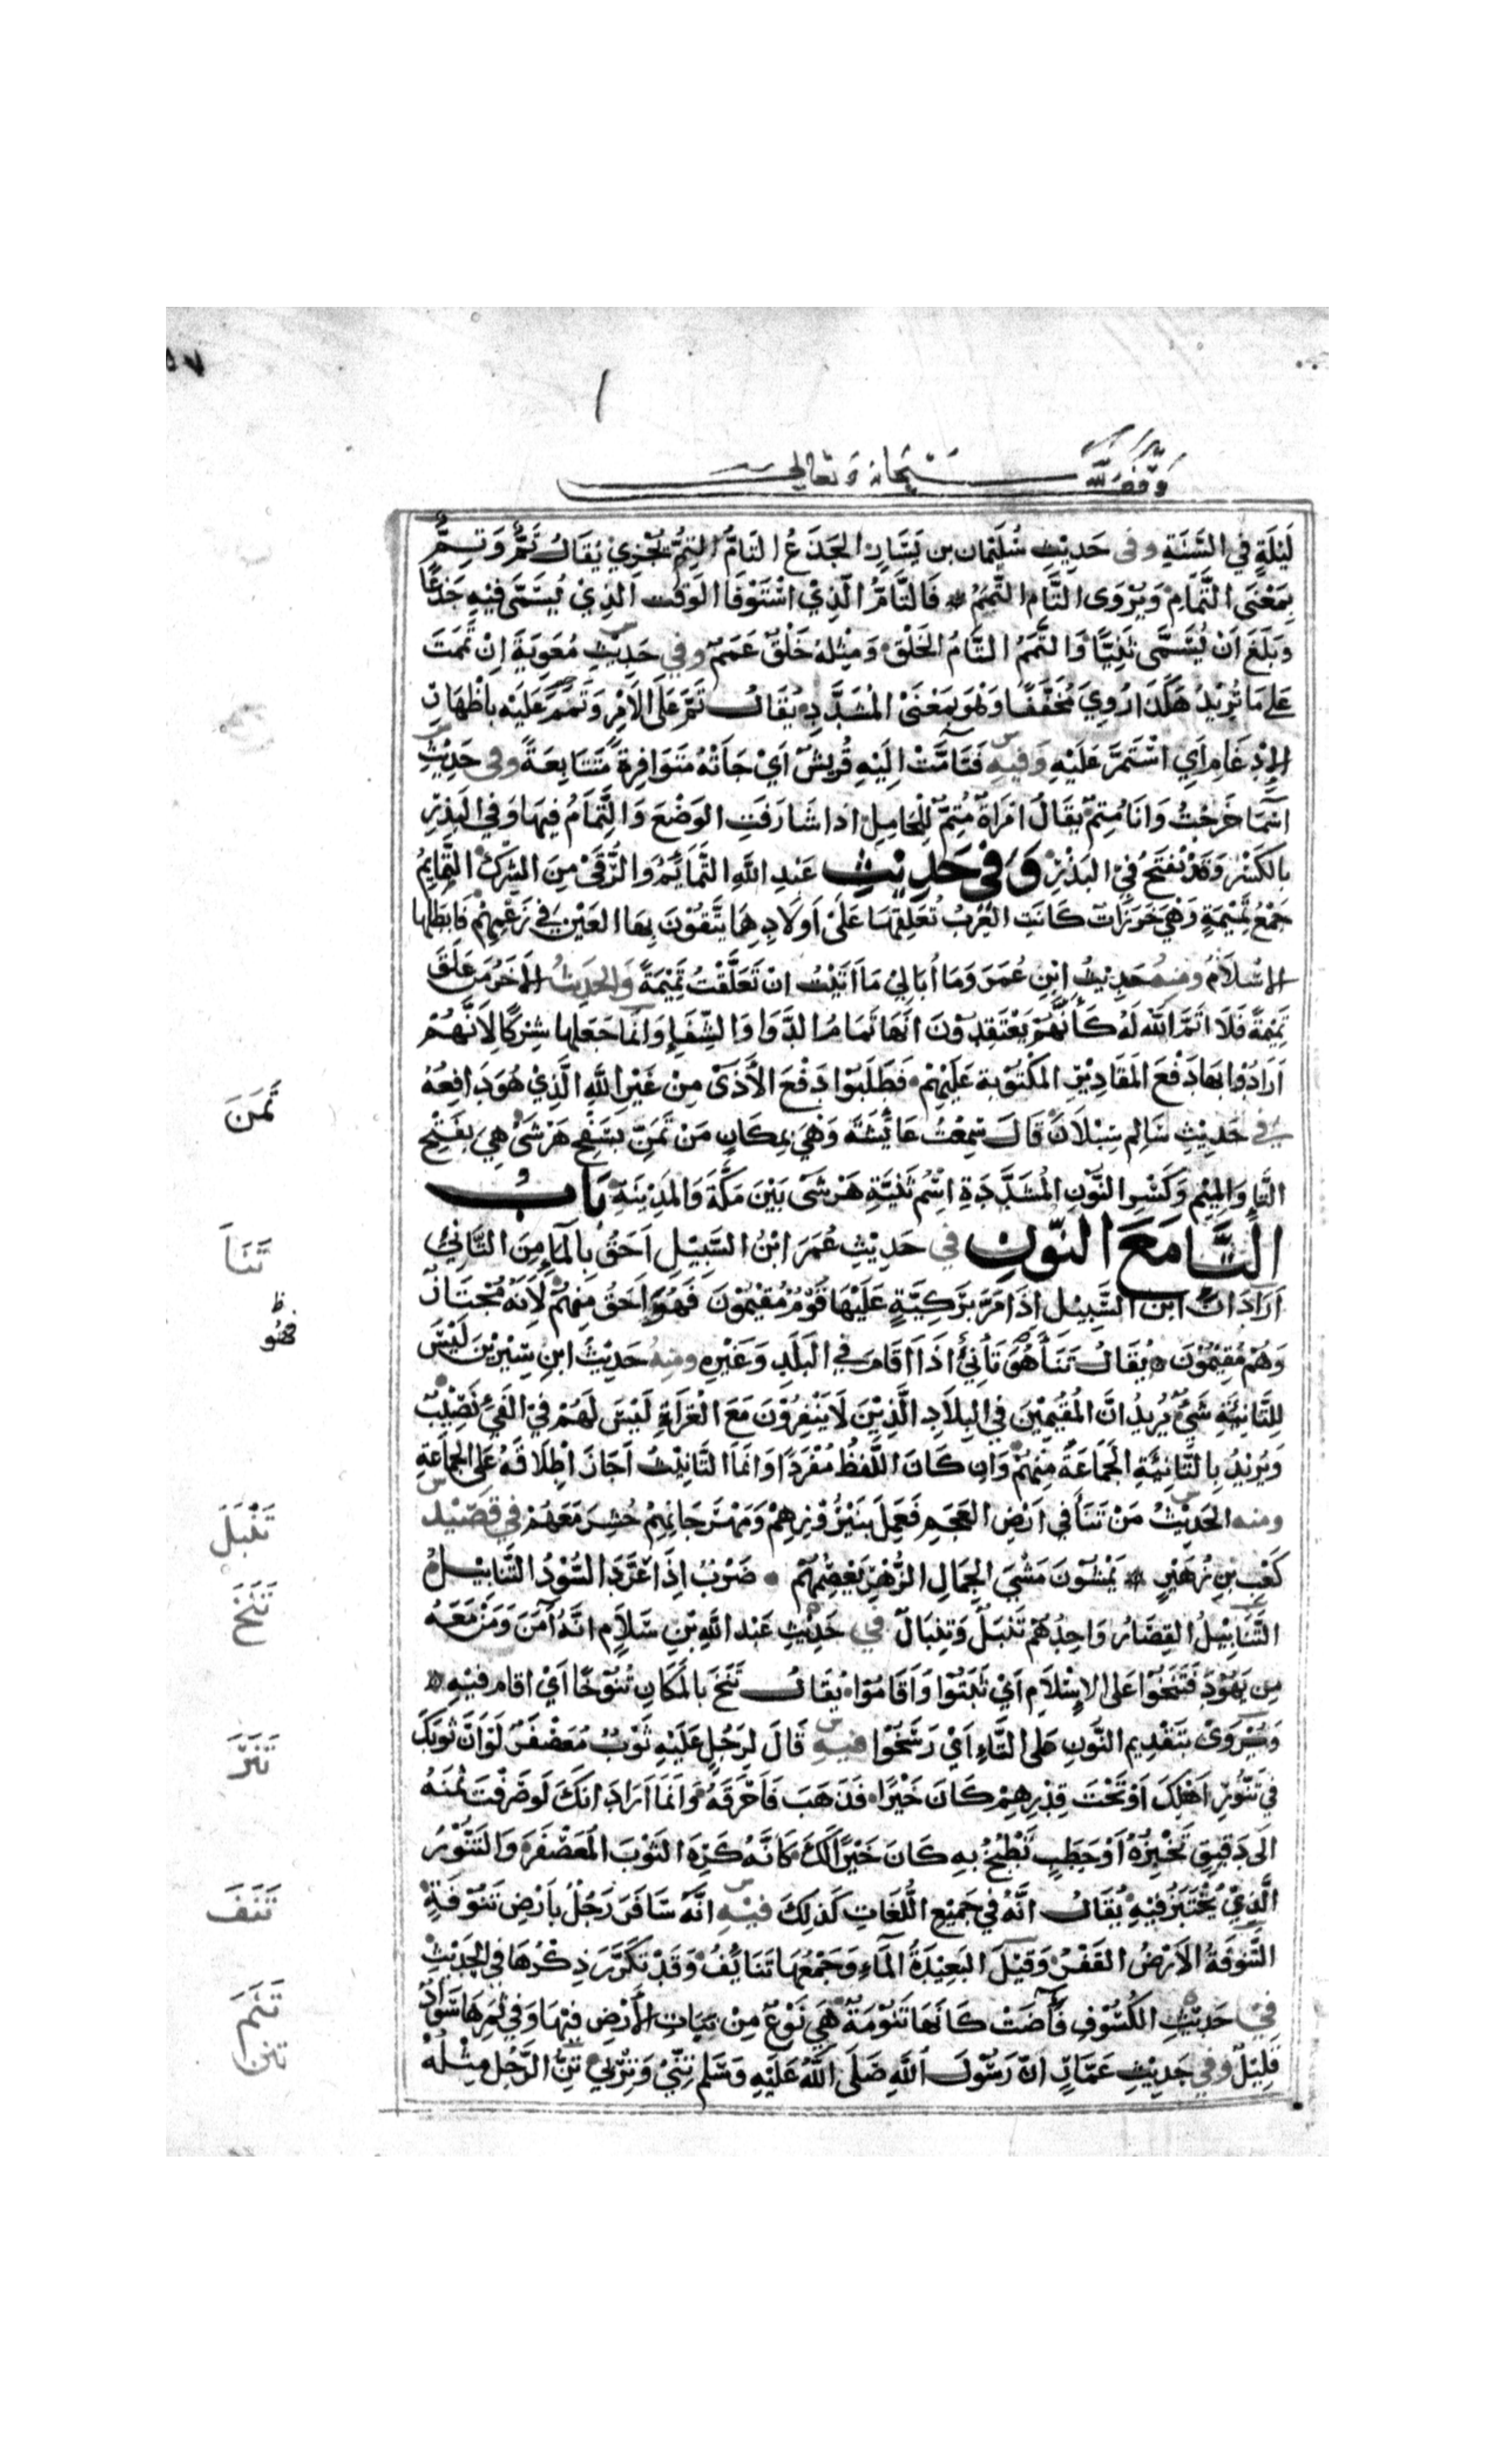 ٥٧
وقف لله سبحانه وتعالى
لَيْلَةٍ في السَّنَةِ وفى حَدِيثِ سُلَيْمان بن يَسَارٍ الجَذَعُ التَامُّ التِمُّ يُجْزِئ يُقَالُ تَمٌّ وَتِمٌّ
بِمَعْنَى التَّمَامِ وَيُرْوَى التَّامُ التَّمَمُ فَالتَّامُّ الَّذِيْ اسْتَوْفَا الوَقْت الَّذِيْ يُسَمَّى فِيْهِ جَذَعًا
وَبَلَغَ اَنْ يُسَمَّى ثَنِيًّا وَالتَّمَمُ التَّامُ الخَلْقِ وَمِثْلهُ خَلْقٌ عَمَمٌ وفي حَدِيْثِ مُعٰوِيَةَ اِنْ تَمَمْتَ
عَلَى مَا تُرِيْدُ هٰكَذَا رُوِيَ مُخَفَّفًا وَهُوَ بِمَعْنَى المُشَدَّدِ يُقَالُ تَمَّ عَلَى الاَمْرِ وَتَمَمَ عَلَيْهِ بِاظْهَارِ
الاِدْغَامِ اَيِ اسْتَمَرَّ عَلَيْهِ وَفيهِ فَتَتَامَّتْ اِلَيْهِ قُرَيْشٌ اَيْ جَاَتْهُ مُتَوَافِرَةً مُتَتَابِعَةً وفى حَدِيْثِ
اَسْمَا خَرَجْتُ وَاَنَا مُتِمٌّ يقَالُ امْرَاَةٌ مُتِمٌّ لِلْحَامِلِ اذا شَارَفَتِ الوَضْعَ وَالتِّمَامُ فِيهَا وَفي البَدْرِ
بِالكَسْرِ وَقَدْ تُفْتَحُ فِيْ البَدْرِ وَفِي حَدِيْثِ عَبْدِ اللهِ التَّمَائِمُ وَالرُّقَى مِنَ الشِّرْكِ التَّمَايِمُ
جَمْعُ تَمِيْمَةٍ وَهْيَ خَرَزَاتٌ كَانَتِ العَرَبُ تُعَلِّقُهَا عَلَى اَوْلَادِهَا يَتَّقُوْنَ بِهَا العَيْنَ فِي زَعْمِهِمْ فَابْطَلَهَا
الاِسْلَامُ ومنهُ حَدِيْثُ ابْنِ عُمَرَ وَمَا اُبَالِيْ مَا اَتَيْتُ انْ تَعَلَّقْتُ تَمِيْمَةً وَالحَدِيْثُ الاٰخَرُ مَنْ عَلَّقَ
تَمِيْمَةً فَلَا اَتَمَّ اللهُ لَهُ كَاَنَّهُمْ يَعْتَقِدُوْنَ اَنّهَا تَمَامُ الدَّوَا وَالشِّفَاءِ وَاِنَّمَا جَعَلَهَا شِرْكًا لِاَنَّهُمْ
اَرَادُوْا بِهَا دَفْعَ المَقَادِيْرِ المَكْتُوْبَةِ عَلَيْهِمْ فَطَلَبُوْا دَفْعَ الاَذَى مِنْ غَيْرِ اللهِ الَّذِيْ هُوَ دَافِعُهُ
في حَدِيْثِ سَالِمِ سَبْلَانَ قَالَ سَمِعْتُ عَائِشَةَ وَهْيَ بِمَكَانٍ مَنْ تَمَنِّ بِسَفْحِ هَرْشَى هِيَ بِفَتْحِ
التَّا وَالمِيْمِ وَكَسْرِ النُّوْنِ المُشَدَّدَةِ اِسْمُ ثَنِيَّةِ هَرْشَى بَيْنَ مَكَّةَ وَالمَدِيْنَةِ بَابُ
التَّا مَعَ النُّوْنِ في حَدِيْثِ عُمَرَ ابْنُ السَّبِيْلِ اَحَقُّ بِالمَاءِ مِنَ التَّانِئ
اَرَادَ اَنَّ ابْنَ السَّبِيْلِ اِذَا مَرَّ بِرَكِيَّةٍ عَلَيْهَا قَوْمٌ مُقِيْمُوْنَ فَهُوَ اَحَقُّ مِنْهُمْ لِاَنَّهُ مُجْتَازٌ
وَهُمْ مُقِيْمُوْنَ يُقَالُ تَنَأَ هُوَ تَانِئٌ اذَا اَقَامَ في البَلَدِ وَغَيْرِهِ ومنهُ حَدِيْثُ ابنِ سِيْرِيْنَ لَيْسَ
لِلتَّانِئَةِ شَيْءٌ يُرِيدُ انَّ المُقِيْمِيْنَ في البِلَادِ الَّذِيْنَ لَا يَنْفِرُوْنَ مَعَ الغُزَاةِ لَيْسَ لَهُمْ فِي الفَيْءِ نَصِيْبٌ
وَيُرِيْدُ بِالتَّانِئَةِ الجَمَاعَةَ مِنْهُمْ وَاِن كَانَ اللَّفْظُ مُفْرَدًا وَانَمَا التَّانِيْثُ اَجَازَ اِطْلَاقَهُ عَلَى الجَمَاعَةِ
ومنه الحَدِيْثُ مَنْ تَنَأَ في اَرْضِ العَجَمِ فَعَمِلَ نَيْرُوْزِهِمْ وَمَهْرَجَانِهِمْ حُشِرَ مَعَهُمْ في قَصِيْد
كَعْبِ بنِ زُهَيْرٍ يَمْشُوْنَ مَشْيَ الجِمَالِ الزُّهْرِ يَعْصِمُهُمْ ضَرْبٌ اِذَا عَرَّدَ السُّوْدُ التَّنَابِيْلُ
التَّنَابِيْلُ القِصَارُ وَاحِدُهُمْ تَنْبَلٌ وَتِنْبَالٌ في حَدِيْثِ عَبْدِ اللهِ بْنِ سَلَامٍ انَّهُ اٰمَنَ وَمَنْ مَعَهُ
مِن يَهُوْدَ فَتَنَخُوْا عَلَى الاِسْلَامِ اَيْ ثَبَتُوْا وَاَقَامُوْا يُقَالُ تَنَخَ بِالمَكَانِ تُنُوْخًا اَيْ اقام فِيْهِ
وَيُرْوَى بِتَقْدِيم النُّونِ عَلى التَّاءِ اَيْ رَسَخُوْا فيهِ قَالَ لِرَجُلٍ عَلَيْهِ ثَوْبٌ مُعَصْفَرٌ لَوْ اَنَّ ثَوْبَكَ
في تَنُّوْرِ اَهْلِكَ اَوْ تَحْتَ قِدْرِهِمْ كَانَ خَيْرًا فَذَهَبَ فَاَحْرَقَهُ وَاِنَّمَا اَرَادَ انَكَ لَوْ صَرَفْتَ ثَمَنَهُ
الى دَقِيْقٍ تَخْبِزُهُ اَوْ حَطَبٍ تَطْبُخُ بِهِ كَانَ خَيْرًا لَكَ كَاَنَّهُ كَرِهَ الثَوْبَ المُعَصْفَرَ وَالتَنُّوْرُ
الَّذِيْ يُخْتَبَزُ فِيْهِ يُقَالُ انَّهُ في جَمِيْعِ اللُّغَاتِ كَذلِكَ فيْهِ انَّهُ سَافَرَ رَجُلٌ بِاَرْضٍ تَنُوْفَةٍ
التَّنُوْفَةُ الاَرْضُ القَفْرُ وَقِيْلَ البَعِيْدَةُ المَاءِ وَجَمْعُهَا تَنَائِفُ وَقَدْ تَكَرَّرَ ذِكْرُهَا في الحَدِيْثِ
في حَدِيْثِ الكُسُوْفِ فَاٰضَتْ كَاَنهَا تَنُّوْمَةٌ هِيَ نَوْعٌ مِنْ نَبَاتِ الاَرْضِ فِيْهَا وَفِيْ ثَمَرِهَا سَوَادٌ
قَلِيْلٌ وفي حَدِيْثِ عَمَّارٍ انّ رَسُوْلَ اللهِ صَلَى اللهُ عَلَيْهِ وَسَلم تِنِّيْ وَتِرْبِيْ تِنُّ الرَّجُلِ مِثْلُهُ
تَمَنَ
تَنَأَ
ظ
فهو
تَنْبَلَ
تَنَخَ
تَنَرَ
تَنَفَ
تَنَمَ
تنن